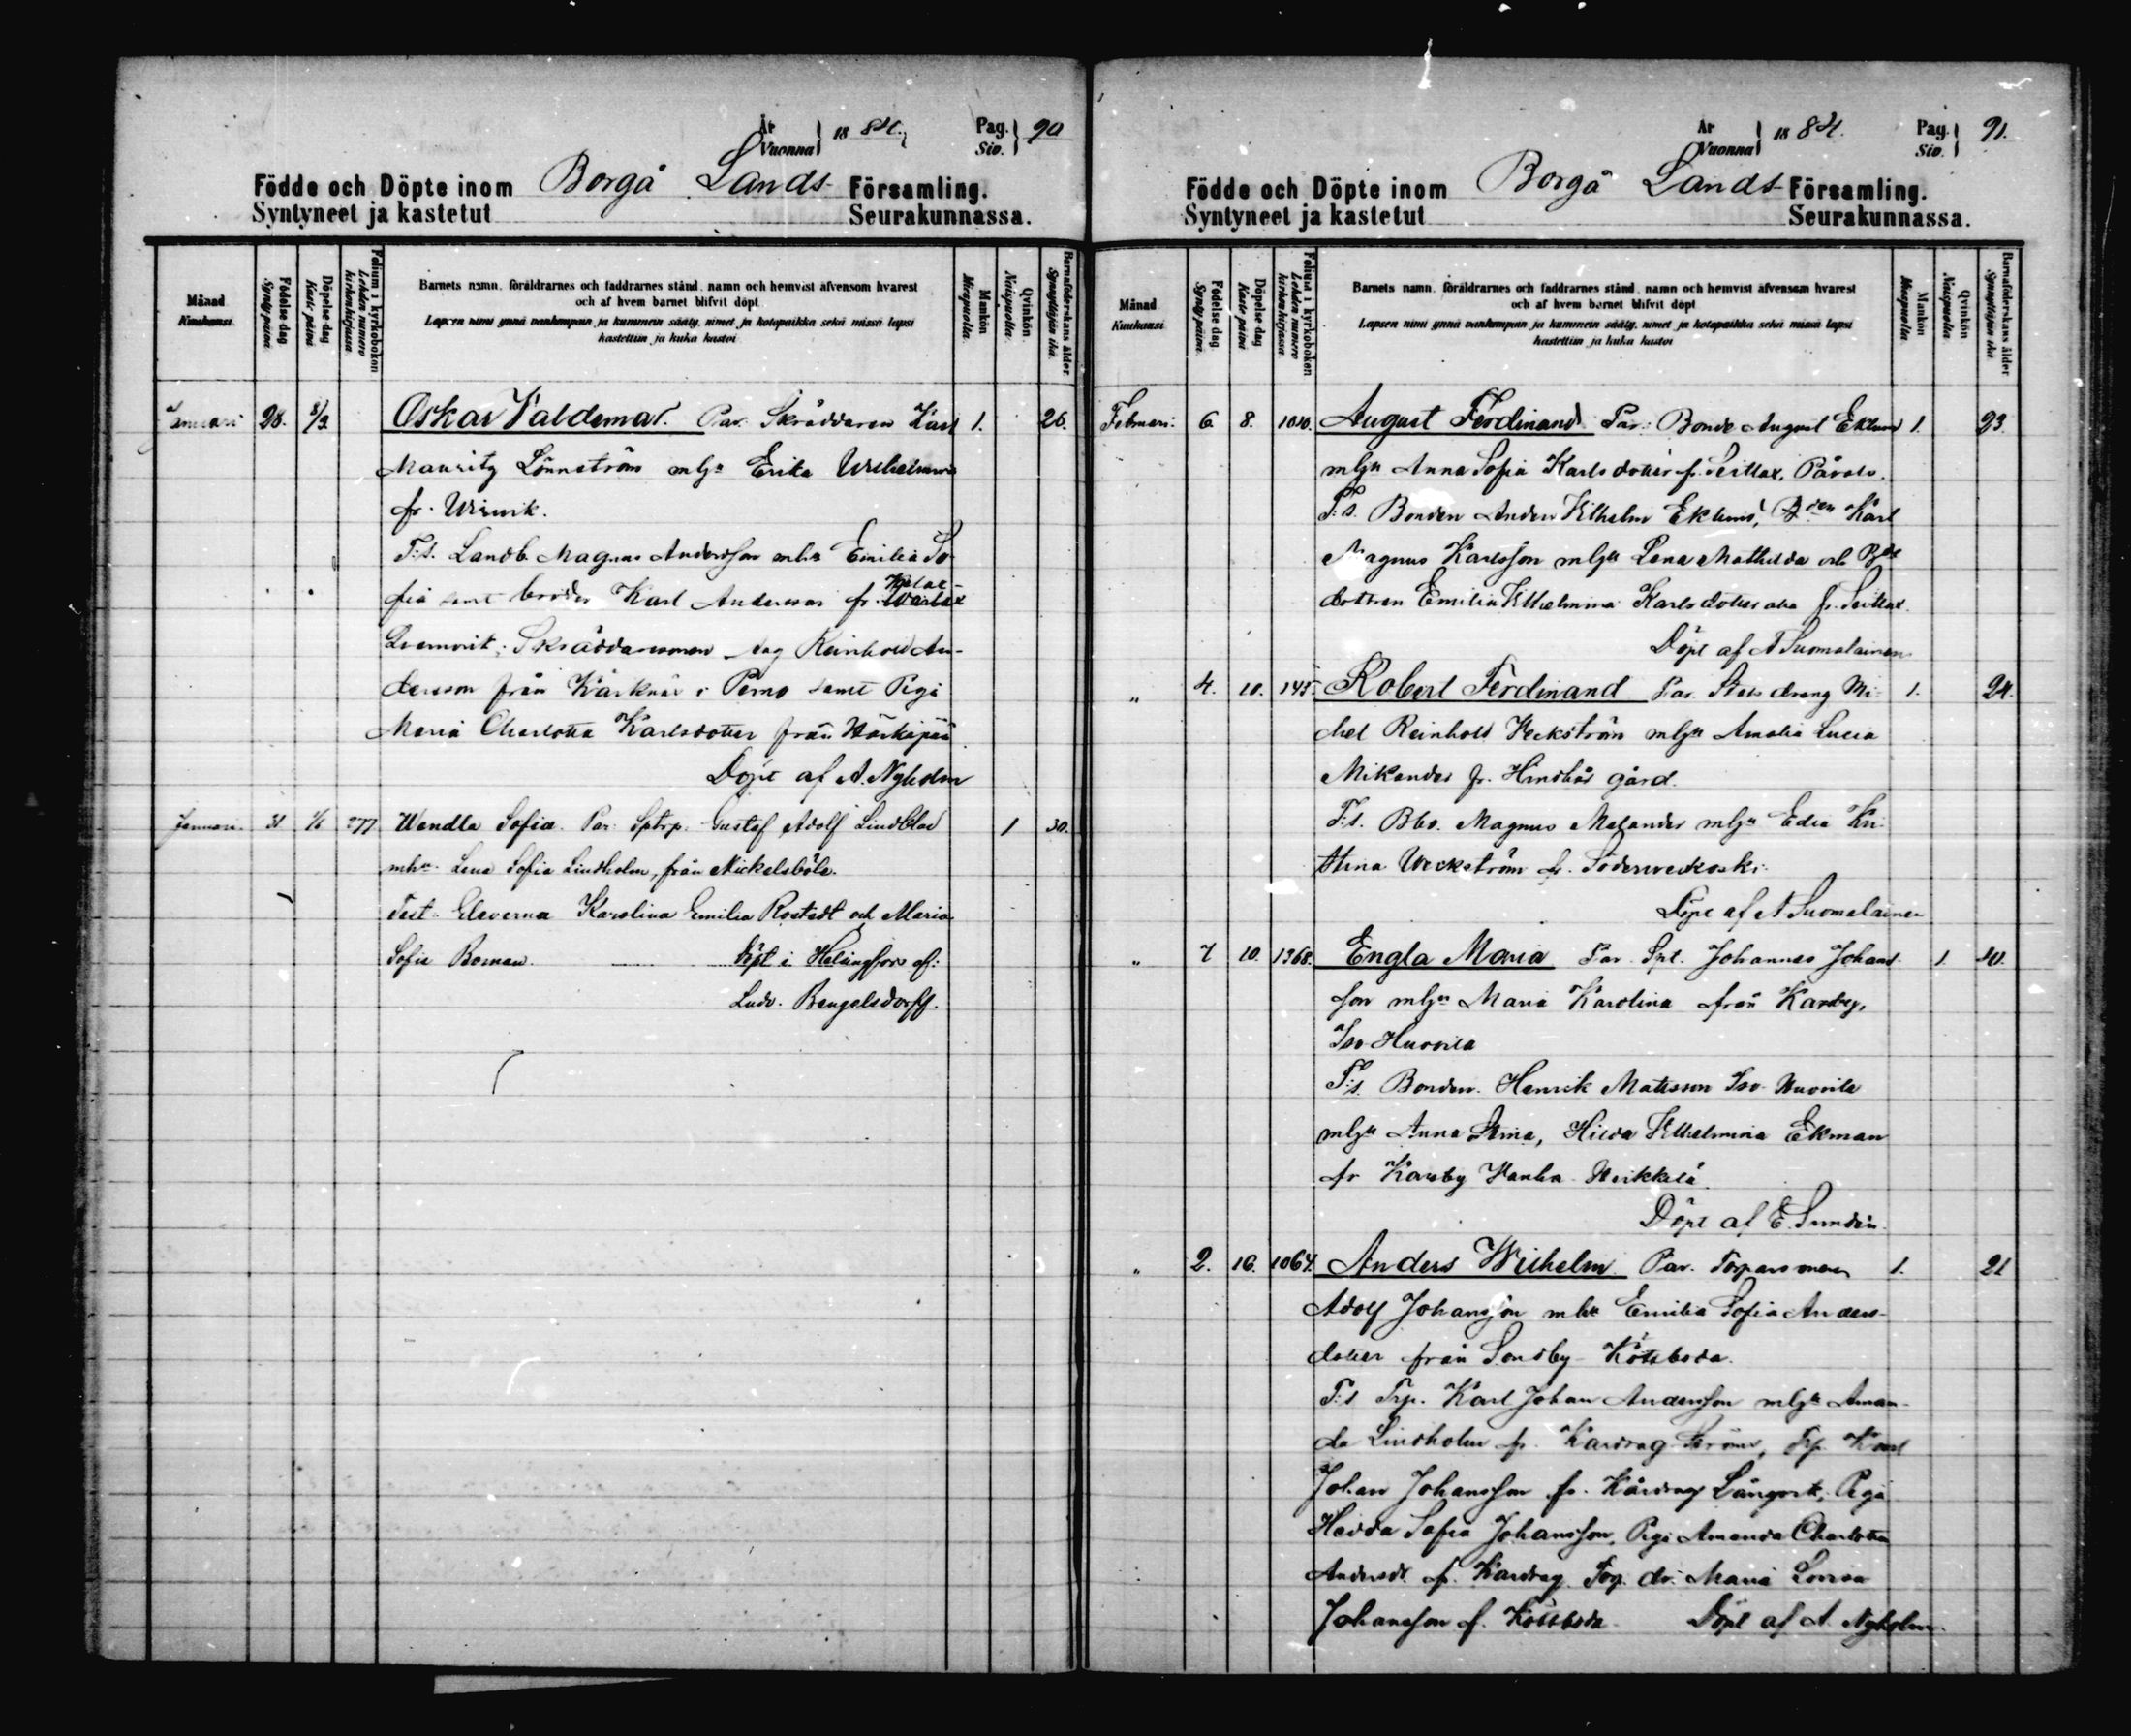 År
Vuonna } 18 84. Pag.
Siv. } 90
Födde och Döpte inom Borgå Lands- Församling.
Syntyneet ja kastetut Seurakunnassa.
Månad
Kuukausi.
Födelse dag
Synty päivä
Döpelse dag
Kaste päivä
Folium i kyrkoboken
Lehden numero kirkonkirjassa
Barnets namn, föräldrarnes och faddrarnes stånd, namn och hemvist äfvensom hvarest
och af hvem barnet blifvit döpt.
Lapsen nimi ynnä vanhempain ja kummein sääty, nimet ja kotopaikka sekä missä lapsi
kastettiin ja kuka kastoi
Mankön
Miespuolia.
Qvinkön
Naispuolia.
Barnaföderskans ålder
Synnyttäjän ikä.
Januari 28. 2/3 Oskar Valdemar. Par. Skräddaren Karl 1. 26.
Mauritz Lönnström mlj:a Erika Wilhelmina
fr.
F:s. Landb. Magnus Andersson mh:a Emilia So-
fia samt broder Karl Andersson fr.
Skräddaresonen Reinhold An-
dersson från Kärknäs i Perno samt Piga
Maria Charlotta Karlsdotter från Härkäpää
Döpt af A. Nyholm
Januari 31 1/6 277 Wendla Sofia. Par. Sptrp. Gustaf Adolf Lindblad 1 30.
mh:a Lena Sofia Lindholm, från Mickelsböle.
Test. Eleverna Karolina Emilia Rostedt och Maria
Sofia Boman. Döpt i Helsingfors af:
Ludv. Bengelsdorff.
År
Vuonna } 18 84. Pag.
Siv. } 91.
Födde och Döpte inom Borgå Lands- Församling.
Syntyneet ja kastetut Seurakunnassa.
Månad
Kuukausi.
Födelse dag
Synty päivä.
Döpelse dag
Kaste päivä
Folium i kyrkoboken
Lehden numero kirkonkirjassa
Barnets namn, föräldrarnes och faddrarnes stånd, namn och hemvist äfvensom hvarest
och af hvem barnet blifvit döpt
Lapsen nimi ynnä vanhempain ja kummein sääty, nimet ja kotopaikka sekä missä lapsi
kastettiin ja kuka kastoi
Mankön
Miespuolia
Qvinkön
Naispuolia
Barnaföderskans ålder
Synnyttäjän ikä
Februari. 6 8. 1010. August Ferdinand Par: Bonde August Eklund 1. 23.
mlj:a Anna Sofia Karlsdotter fr. Seitlax, Påvals.
F:s. Bonden Anders Vilhelm Eklund, Karl
Magnus Karlsson mlj:a Lena Mathilda och
dottren Emilia Vilhelmina Karlsdotter fr. Seitlax.
Döpt af A Suomalainen
" 4. 10. 145. Robert Ferdinand Par. Stats dräng Mi- 1. 24.
chel Reinhold Veckström mlj:a Amalia Lucia
Mikander fr. Hindhår gård.
F:s. Bbo. Magnus Melander mlj:a Edia Kri-
stina Weckström fr. Söderveckoski.
Döpt af A Suomalainen
" 7 10. 1368. Engla Maria Par. Spt. Johannes Johans- 1. 40.
son mlj:a Maria Karolina från Karsby,
Iso-Huovila
F:s. Bonden Henrik Matsson Iso-Huovila
mlj:a Anna Stina, Hilda Vilhelmina Ekman
fr Karsby Vanha-Heikkilä.
Döpt af E. Sundén.
" 2. 16. 1064. Anders Wilhelm Par. Torparesonen 1. 21
Adolf Johansson mh:a Emilia Sofia Anders-
dotter från Sondby-Kötsboda.
F:s Trp. Karl Johan Andersson mlj:a Aman-
da Lindholm fr. Kardrag Ström, Trp. Karl
Johan Johansson fr. Kårdrag Långvik, Piga
Hedda Sofia Johansson, Piga Amanda Charlotta
Andersdr. fr. Kardrag Torp. dr. Maria Lovisa
Johansson f. Kötsboda. Döpt af A. Nyholm.